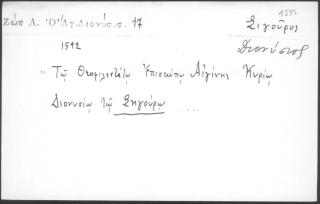 Ζώη Λ. Ὁ Ἅγ. Διονύσ. σ. 17
1592
Σιγοῦρος
Διονύσιος
1592
"Τῷ Θεοφιλεστάτῳ Ἐπισκόπῳ Αἰγίνης Κυρίῳ
Διονυσίῳ τῷ Σηγούρῳ ....